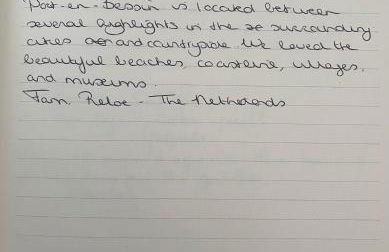 Port-en-Bessin is located between
several highlights in the surrounding
cities and countryside. We loved the
beautiful beaches, coastline, villages,
and museums.
Fam. Reloe - The Netherlands